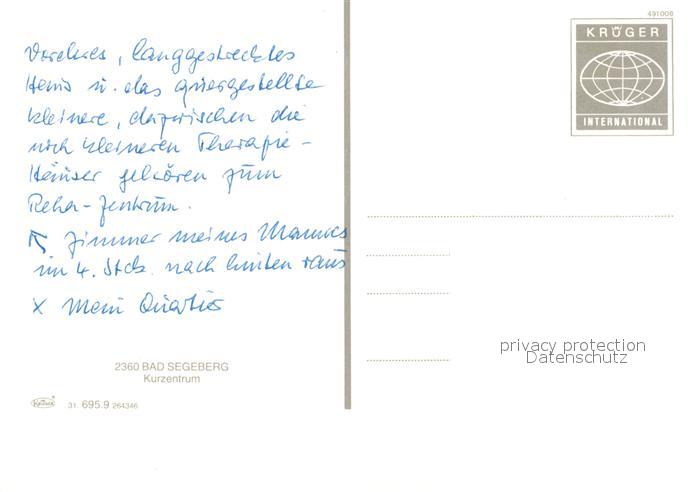 Vorderes, langgestrecktes
Haus u. das quergestellte
kleinere, dazwischen die
noch kleineren Therapie-
Häuser gehören zum
Reha-Zentrum.
↖ Zimmer meines Mannes
im 4. Stck. nach hinten raus
x Mein Quartier
2360 BAD SEGEBERG
Kurzentrum
Krüger 31. 695.9 264346
491008
KRÜGER
INTERNATIONAL
privacy protection
Datenschutz